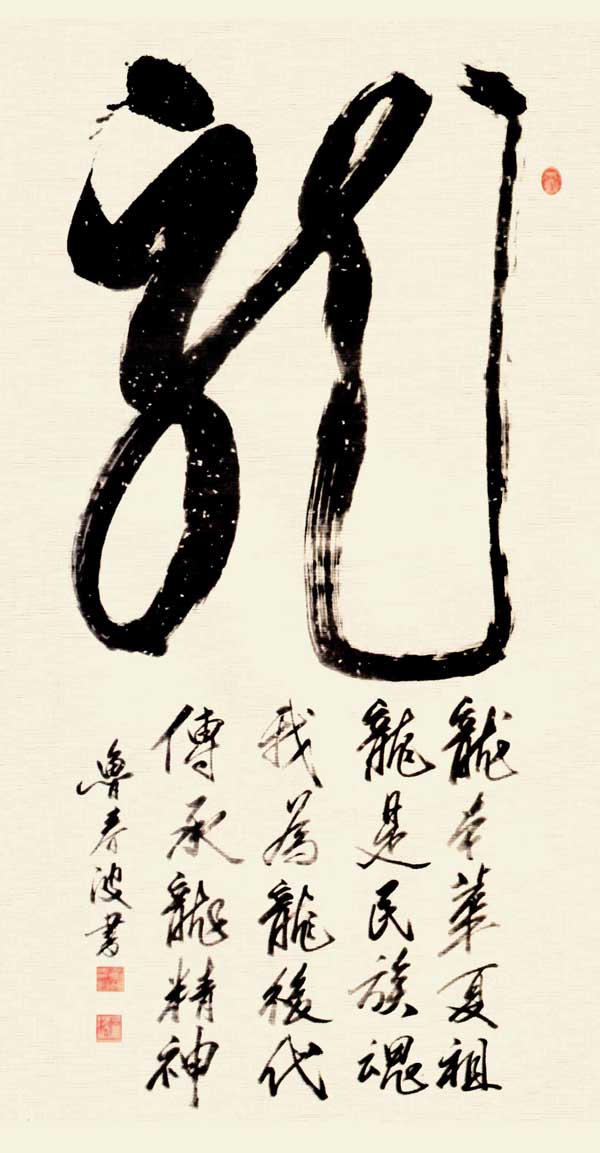 龍
龍本華夏祖
龍是民族魂
我為龍後代
傳承龍精神
魯春波書